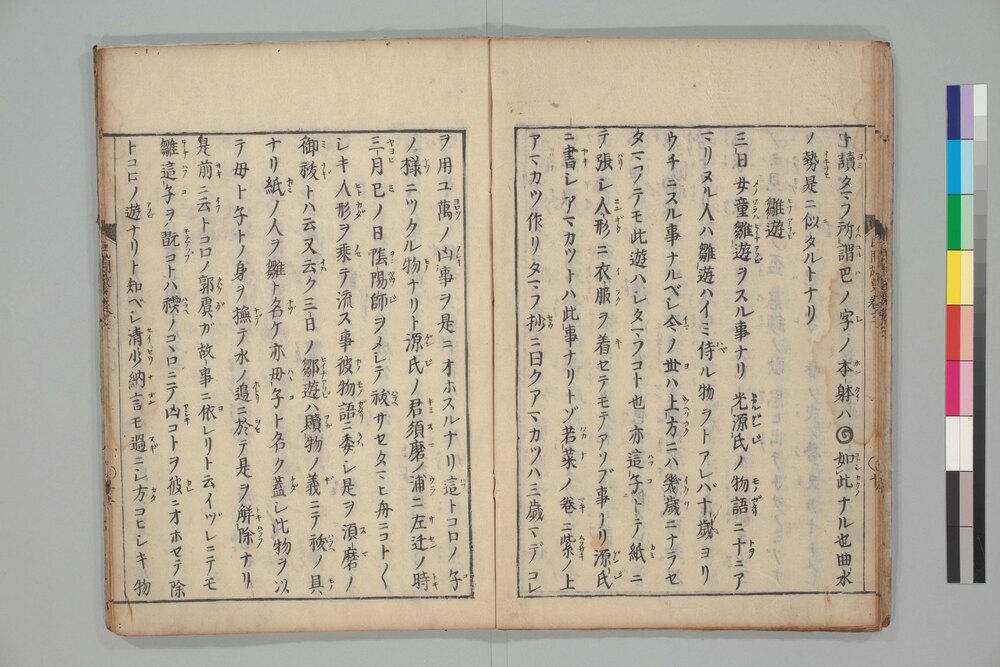 ト讀タマフ所謂巴ノ字ノ本躰ハ如此ナル也曲水
ノ勢是ニ似タルトナリ
雛遊
三日女童雛遊ヲスル事ナリ光源氏ノ物語ニ十ニア
マリヌル人ハ雛遊ハイミ侍ル物ヲトアレバ十歳ヨリ
ウチニスル事ナルベシ今ノ世ハ上方ニハ幾歳ニナラセ
タマフテモ此遊ハシタマフコト也亦這子トテ紙ニ
テ張シ人形ニ衣服ヲ着セテモテアソブ事アリ源氏
ニ書シアマカツトハ此事ナリトゾ若菜ノ卷ニ紫ノ上
アマカツ作リタマフ抄ニ曰クアマカツハ三歳マデコレ
ヲ用ユ萬ノ凶事ヲ是ニオホスルナリ這トコロノ子
ノ様ニツクル物ナリト源氏ノ君須磨ノ浦ニ左迁ノ時
三月巳ノ日陰陽師ヲメシテ祓サセタマヒ舟ニコト〱
シキ人形ヲ乘テ流ス事彼物語ニ委シ是ヲ須磨ノ
御祓トハ云又云ク三日ノ鄒遊ハ贖物ノ義ニテ祓ノ具
ナリ紙ノ人ヲ雛ト名ケ亦母子ト名ク蓋シ此物ヲ以
テ母ト子トノ身ヲ撫テ水ノ邉ニ於テ是ヲ解除ナリ
是前ニ云トコロノ郭虞ガ故事ニ依レリト云イヅレニテモ
雛這子ヲ翫コトハ禊ノコヽロニテ凶コトヲ彼ニオホセテ除
トコロノ遊ナリト知ベシ清少納言モ過ニシ方コヒシキ物